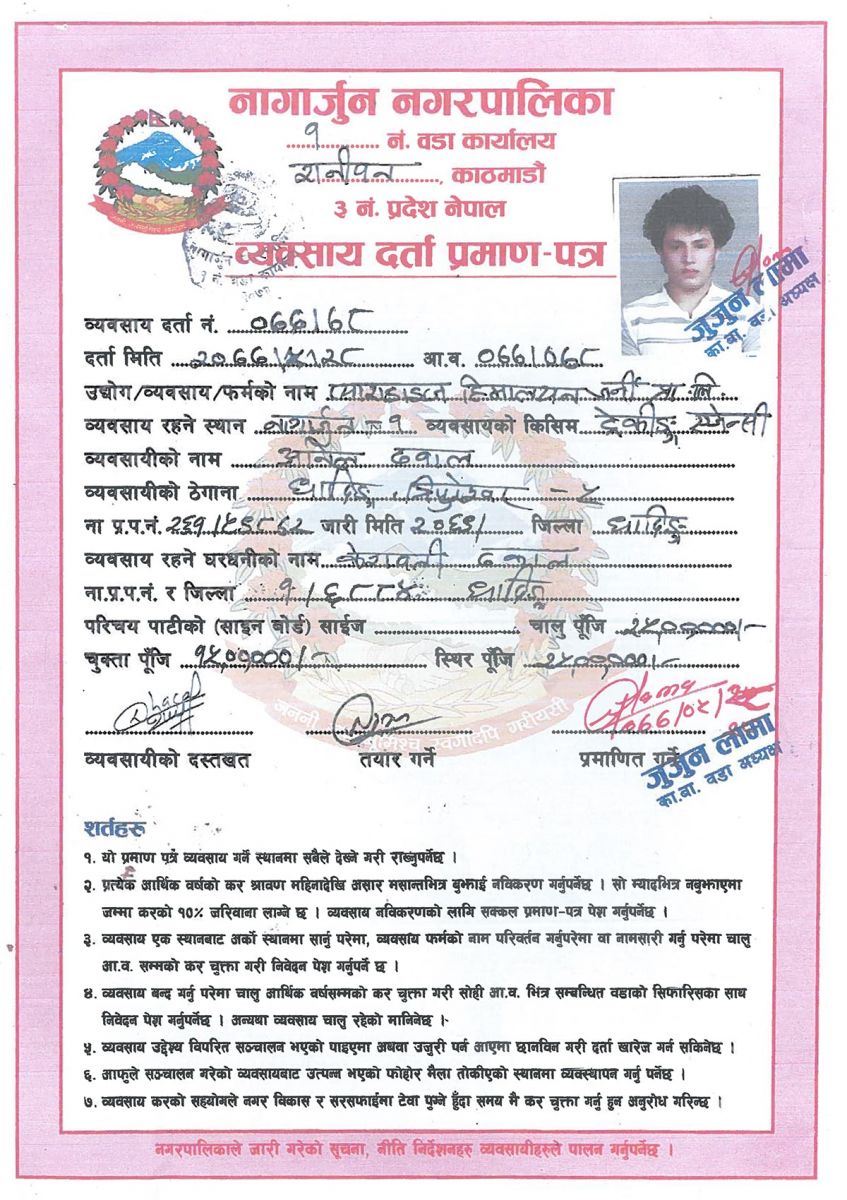 नागार्जुन नगरपालिका
१ नं. वडा कार्यालय
रानीवन, काठमाडौ
३ नं. प्रदेश नेपाल
व्यवसाय दर्ता प्रमाण-पत्र
जुर्जुन लामा
का.बा. वडा अध्यक्ष
व्यवसाय दर्ता नं. ०६६।६८
दर्ता मिति आ.व. ०६६।०६८
उद्योग/व्यवसाय/फर्मको नाम हिमालयन जर्नी प्रा.लि.
व्यवसाय रहने स्थान नागार्जुन न १ व्यवसायको किसिम ट्रेकीङ्ग एजेन्सी
व्यवसायीको नाम अनिल ढकाल
व्यवसायीको ठेगाना धादिङ्ग, त्रिपुरेश्वर - ५
ना प्र.प.नं. जारी मिति जिल्ला धादिङ्ग
व्यवसाय रहने घरधनीको नाम ढकाल
ना.प्र.प.नं. र जिल्ला धादिङ्ग
परिचय पाटीको (साइन बोर्ड) साईज चालु पूँजि
चुक्ता पूँजि स्थिर पूँजि
जननी जन्मभूमिश्च स्वर्गादपि गरीयसी
Dhacal
व्यवसायीको दस्तखत तयार गर्ने प्रमाणित गर्ने
जुर्जुन लामा
का.बा. वडा अध्यक्ष
शर्तहरु
१. यो प्रमाण पत्र व्यवसाय गर्ने स्थानमा सबैले देख्ने गरी राख्नुपर्नेछ ।
२. प्रत्येक आर्थिक वर्षको कर श्रावण महिनादेखि असार मसान्तभित्र बुझाई नविकरण गर्नुपर्नेछ । सो म्यादभित्र नबुझाएमा
जम्मा करको १०% जरिवाना लाग्ने छ । व्यवसाय नविकरणको लागि सक्कल प्रमाण-पत्र पेश गर्नुपर्नेछ ।
३. व्यवसाय एक स्थानबाट अर्को स्थानमा सार्नु परेमा, व्यवसाय फर्मको नाम परिवर्तन गर्नुपरेमा वा नामसारी गर्नु परेमा चालु
आ.व. सम्मको कर चुक्ता गरी निवेदन पेश गर्नुपर्ने छ ।
४. व्यवसाय बन्द गर्नु परेमा चालु आर्थिक वर्षसम्मको कर चुक्ता गरी सोही आ.व. भित्र सम्बन्धित वडाको सिफारिसका साथ
निवेदन पेश गर्नुपर्नेछ । अन्यथा व्यवसाय चालु रहेको मानिनेछ ।
५. व्यवसाय उद्देश्य विपरित सञ्चालन भएको पाइएमा अथवा उजुरी पर्न आएमा छानविन गरी दर्ता खारेज गर्न सकिनेछ ।
६. आफुले सञ्चालन गरेको व्यवसायबाट उत्पन्न भएको फोहोर मैला तोकीएको स्थानमा व्यवस्थापन गर्नु पर्नेछ ।
७. व्यवसाय करको सहयोगले नगर विकास र सरसफाईमा टेवा पुग्ने हुँदा समय मै कर चुक्ता गर्नु हुन अनुरोध गरिन्छ ।
नगरपालिकाले जारी गरेको सूचना, नीति निर्देशनहरु व्यवसायीहरुले पालन गर्नुपर्नेछ ।